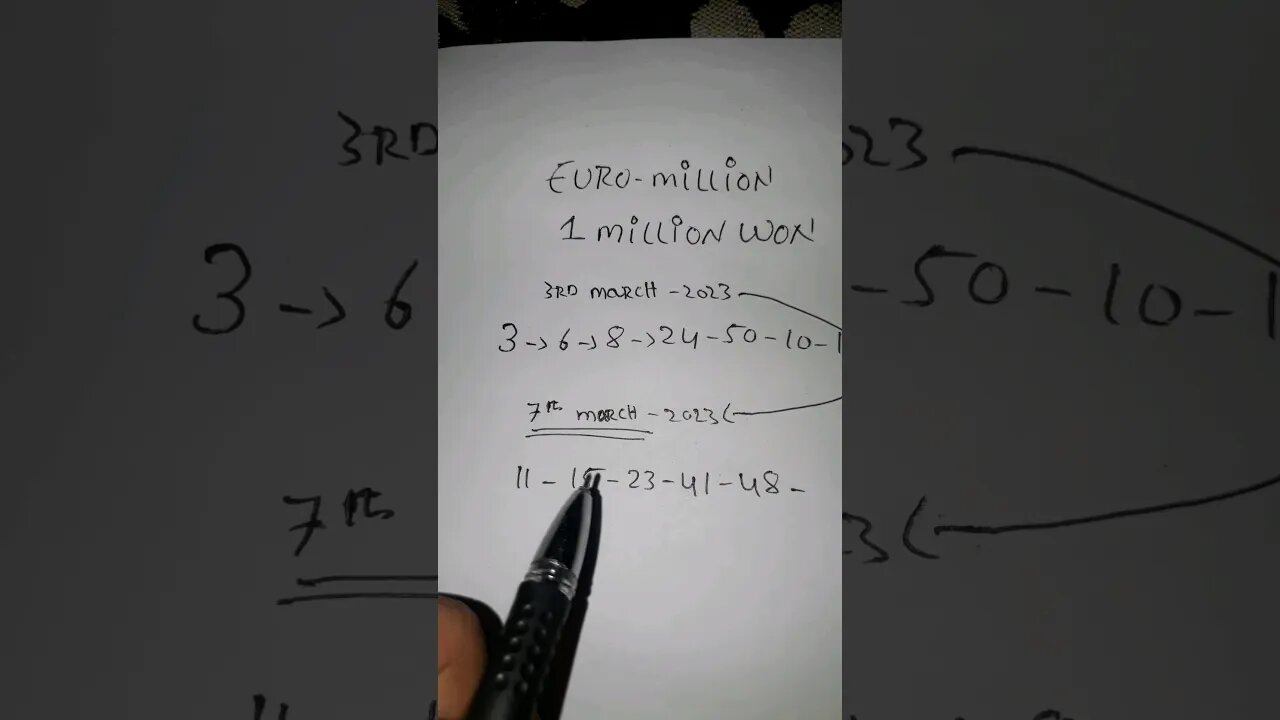 EURO-million
1 million WON
3RD MARCH - 2023
3 → 6 → 8 → 24 - 50 - 10 - 1
7th MARCH - 2023
11 - 15 - 23 - 41 - 48 -